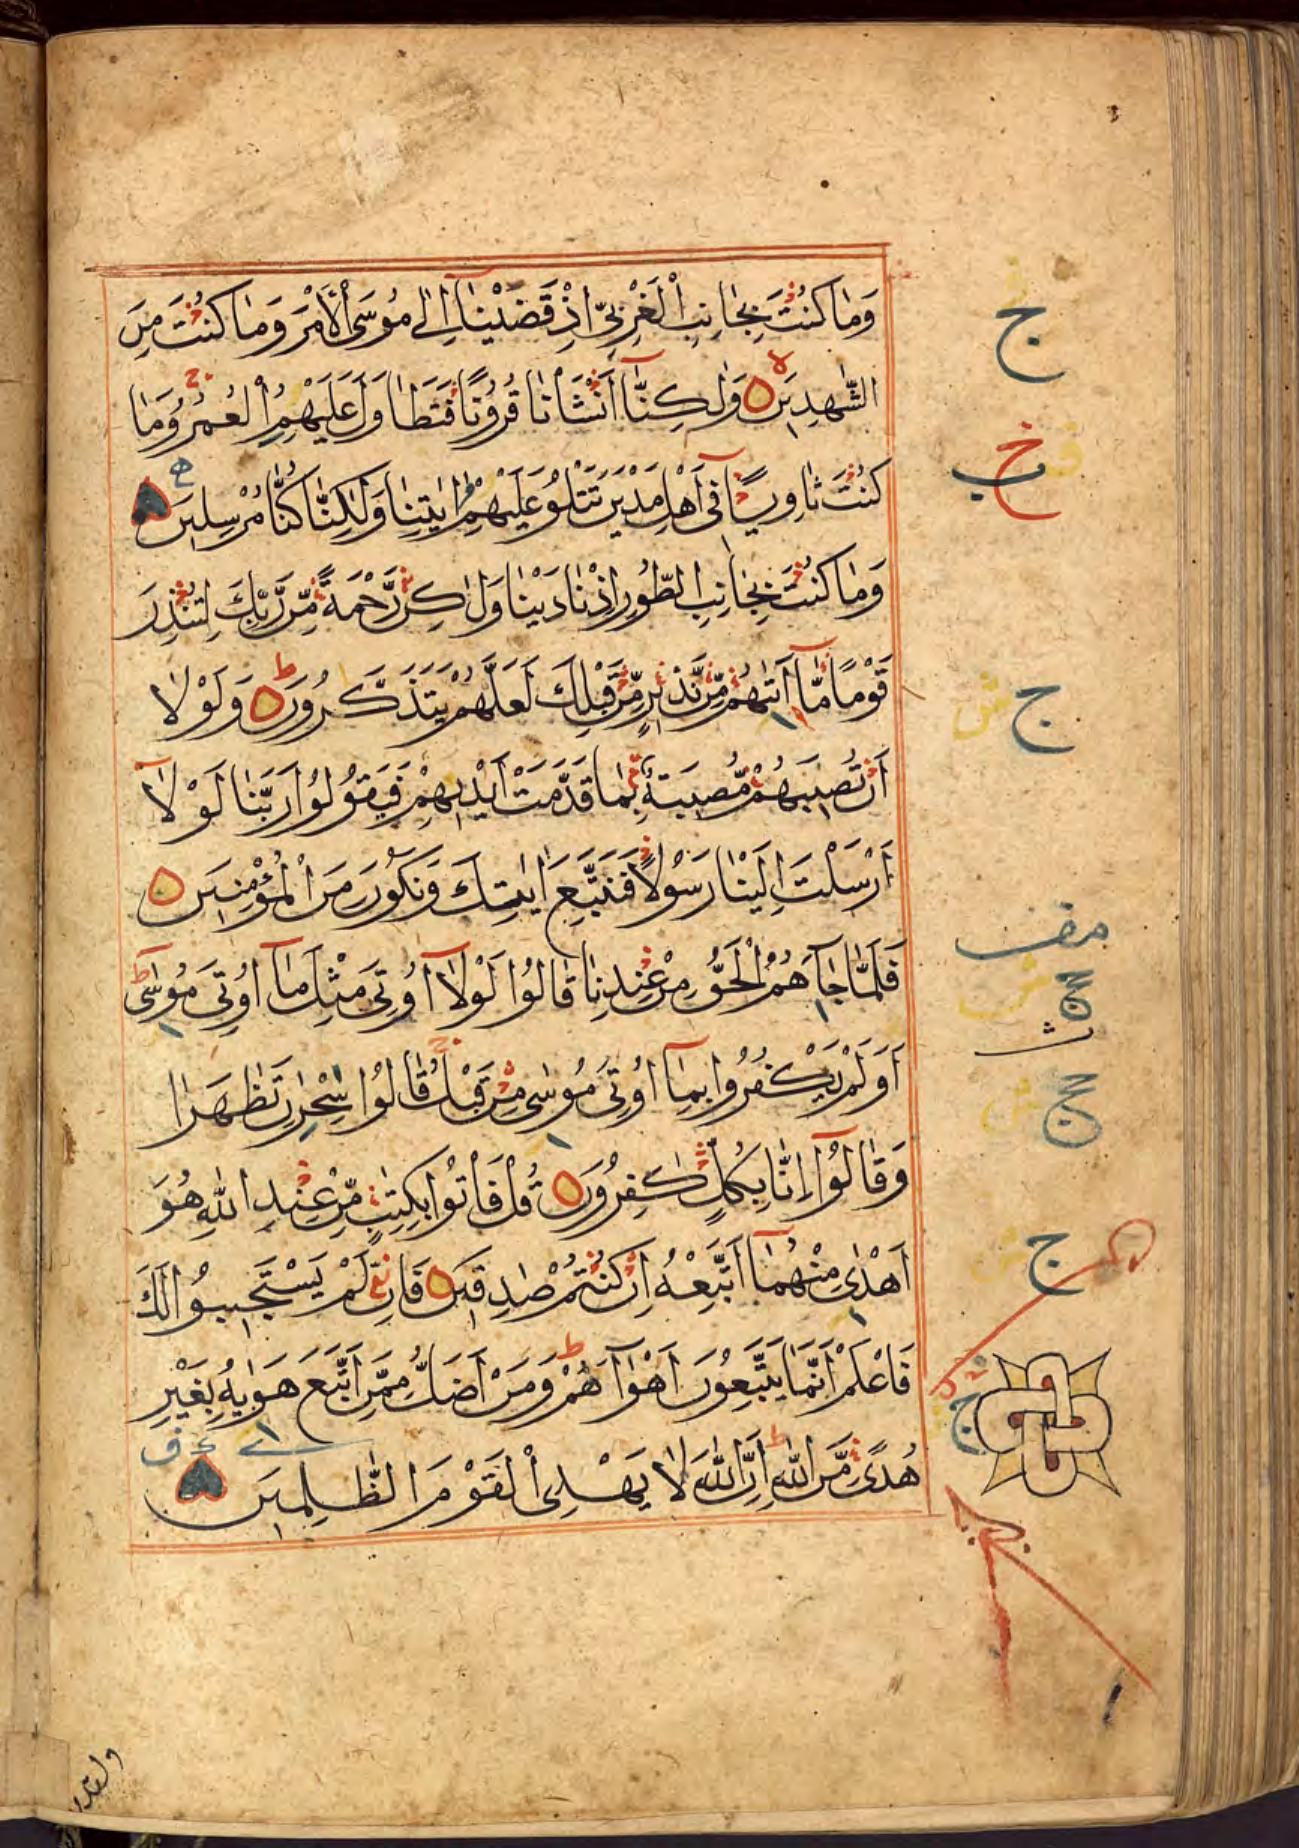 وَمَا كُنْتَ بِجَانِبِ الْغَرْبِيِّ اِذْ قَضَيْنَآ اِلٰى مُوسَى الْاَمْرَ وَمَا كُنْتَ مِنَ
الشّٰهِدِينَ وَلٰكِنَّآ اَنْشَاْنَا قُرُونًا فَتَطَاوَلَ عَلَيْهِمُ الْعُمُرُ وَمَا
كُنْتَ ثَاوِيًا فِىٓ اَهْلِ مَدْيَنَ تَتْلُوْ عَلَيْهِمْ اٰيٰتِنَا وَلٰكِنَّا كُنَّا مُرْسِلِينَ
وَمَا كُنْتَ بِجَانِبِ الطُّورِ اِذْ نَادَيْنَا وَلٰكِنْ رَّحْمَةً مِّنْ رَّبِّكَ لِتُنْذِرَ
قَوْمًا مَّآ اَتٰىهُمْ مِّنْ نَّذِيْرٍ مِّنْ قَبْلِكَ لَعَلَّهُمْ يَتَذَكَّرُونَ وَلَوْلَا
اَنْ تُصِيْبَهُمْ مُّصِيبَةٌ بِمَا قَدَّمَتْ اَيْدِيهِمْ فَيَقُولُوا رَبَّنَا لَوْلَآ
اَرْسَلْتَ اِلَيْنَا رَسُولًا فَنَتَّبِعَ اٰيٰتِكَ وَنَكُوْنَ مِنَ الْمُؤْمِنِينَ
فَلَمَّا جَآءَهُمُ الْحَقُّ مِنْ عِنْدِنَا قَالُوا لَوْلَآ اُوتِىَ مِثْلَ مَآ اُوتِىَ مُوسٰى
اَوَلَمْ يَكْفُرُوا بِمَآ اُوتِىَ مُوسٰى مِنْ قَبْلُ قَالُوا سِحْرٰنِ تَظَاهَرَا
وَقَالُوٓا اِنَّا بِكُلٍّ كٰفِرُونَ قُلْ فَاْتُوا بِكِتٰبٍ مِّنْ عِنْدِ اللّٰهِ هُوَ
اَهْدٰى مِنْهُمَآ اَتَّبِعْهُ اِنْ كُنْتُمْ صٰدِقِينَ فَاِنْ لَّمْ يَسْتَجِيبُوا لَكَ
فَاعْلَمْ اَنَّمَا يَتَّبِعُونَ اَهْوَآءَهُمْ وَمَنْ اَضَلُّ مِمَّنِ اتَّبَعَ هَوٰيهُ بِغَيْرِ
هُدًى مِّنَ اللّٰهِ اِنَّ اللّٰهَ لَا يَهْدِى الْقَوْمَ الظّٰلِمِينَ
ج
ج
ج
ج
ولقد